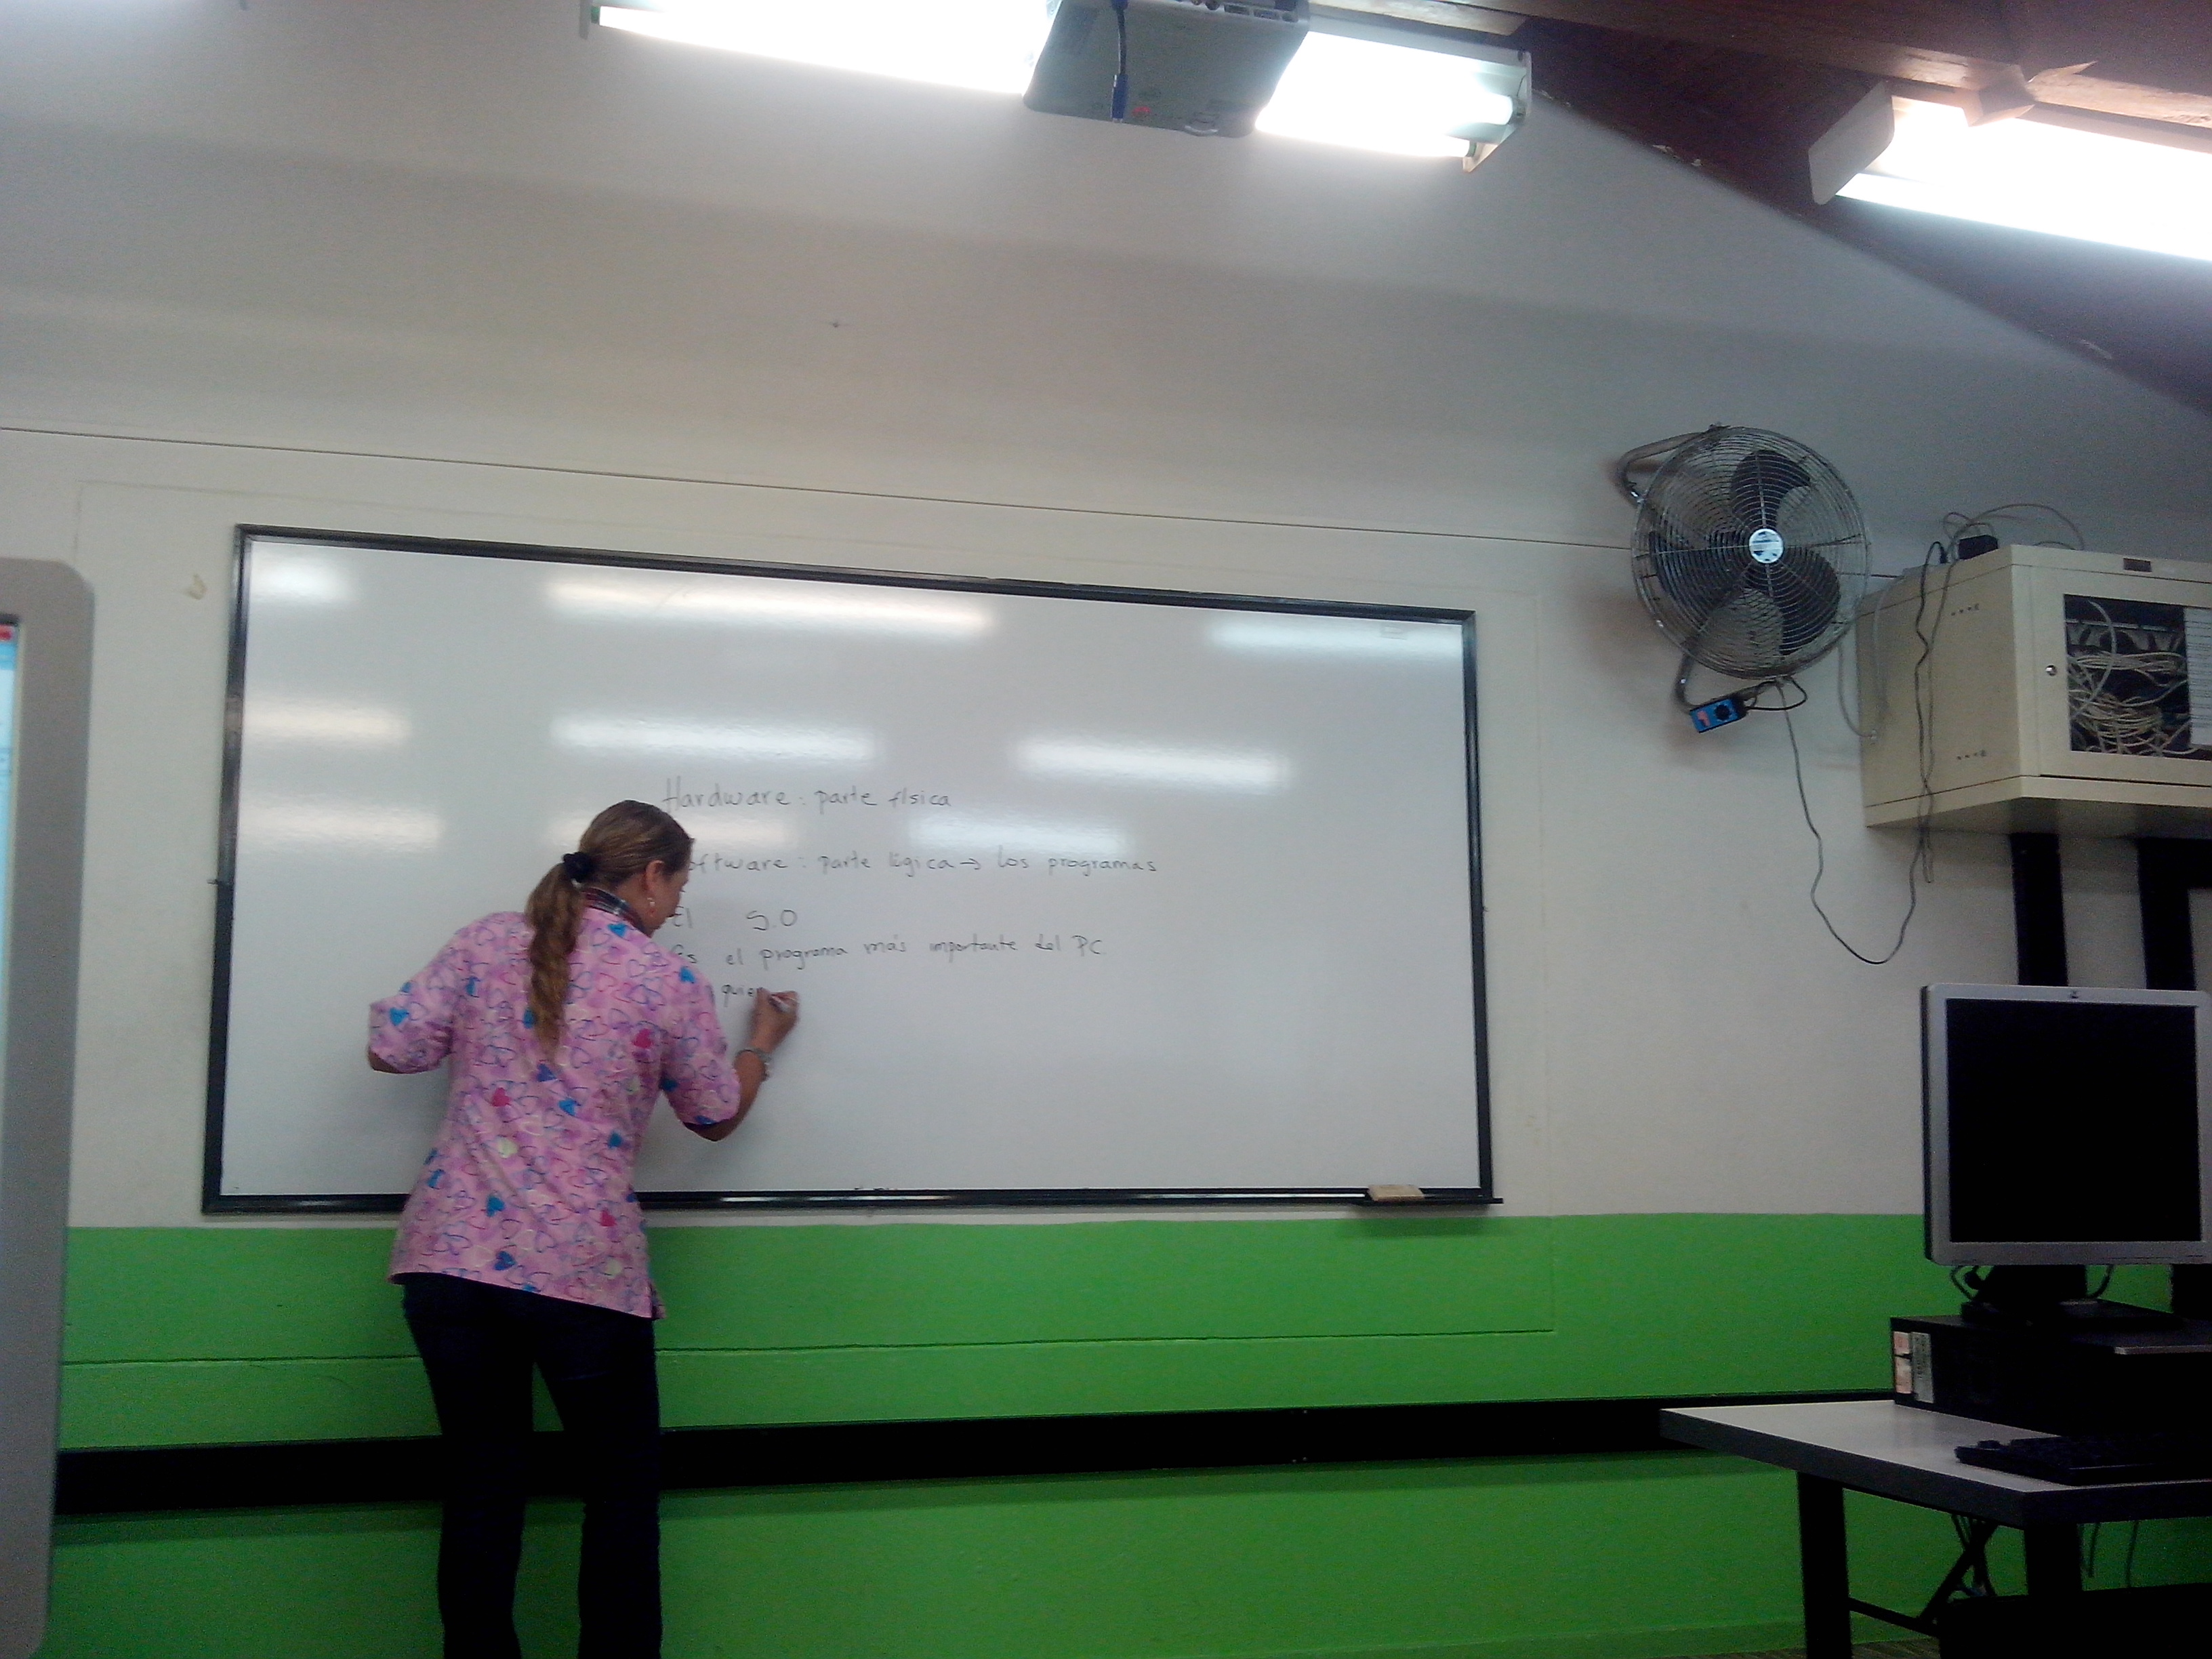 Hardware: parte física
Software: parte lógica → los programas
El S.O
Es el programa más importante del PC.
quien